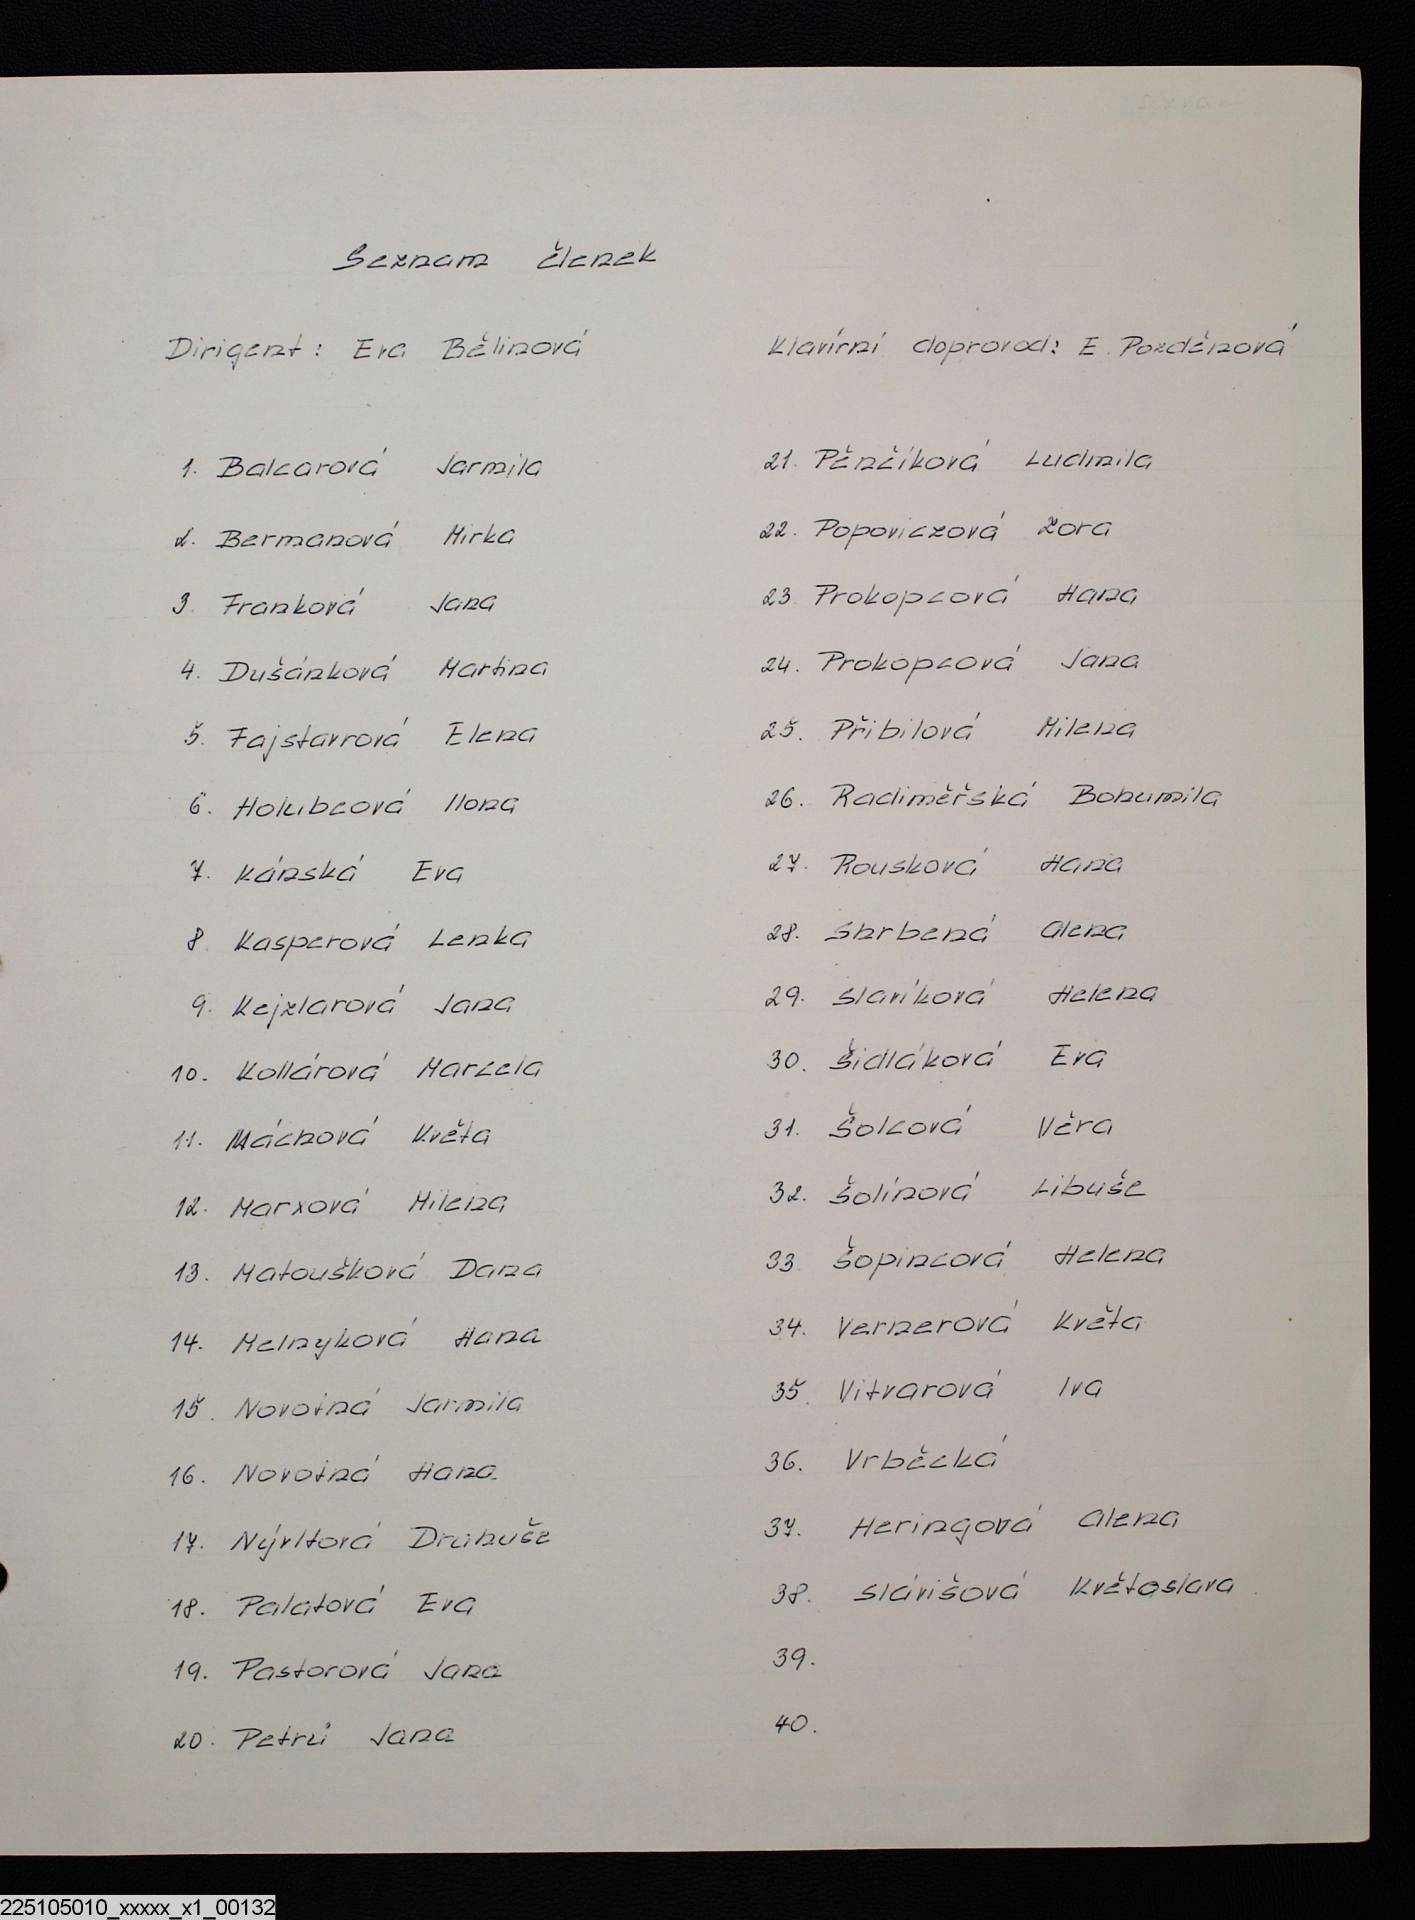 Seznam členek
Dirigent: Eva Bělinová
1. Balcarová Jarmila
2. Bermanová Mirka
3. Franková Jana
4. Dušánková Martina
5. Fajstavrová Elena
6. Holubcová Ilona
7. Kánská Eva
8. Kasperová Lenka
9. Kejzlarová Jana
10. Kollárová Marcela
11. Máchová Květa
12. Marxová Milena
13. Matoušková Dana
14. Melnyková Hana
15. Novotná Jarmila
16. Novotná Hana
17. Nývltová Drahuše
18. Palatová Eva
19. Pastorová Jana
20. Petrů Jana
Klavírní doprovod: E. Pozděnová
21. Pěnčíková Ludmila
22. Popoviczová Zora
23. Prokopcová Hana
24. Prokopcová Jana
25. Přibilová Milena
26. Radiměřská Bohumila
27. Rousková Hana
28. Shrbená Alena
29. Slavíková Helena
30. Šidláková Eva
31. Šolcová Věra
32. Šolínová Libuše
33. Šopincová Helena
34. Vernerová Květa
35. Vitvarová Iva
36. Vrběcká
37. Heringová Alena
38. Slávišová Květoslava
39.
40.
225105010_xxxxx_x1_00132